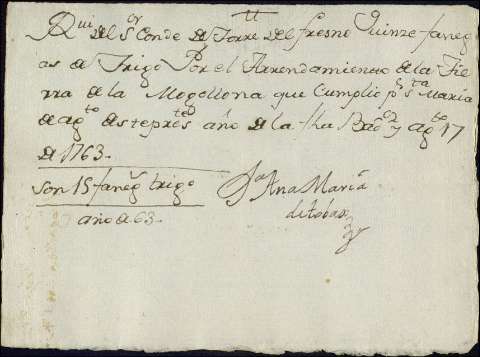 Rui del Sor Conde de Torre del fresno Quinze faneg
as de Trigo Por el Arrendamiento de la Tie
rra de la Mogollona que Cumplio pr Sta Maria
de agto de este preste año de la fha Badz y agto 17
de 1763.
son 15 fanegs trigo
año de 63.
Da Ana Maria
de tobar